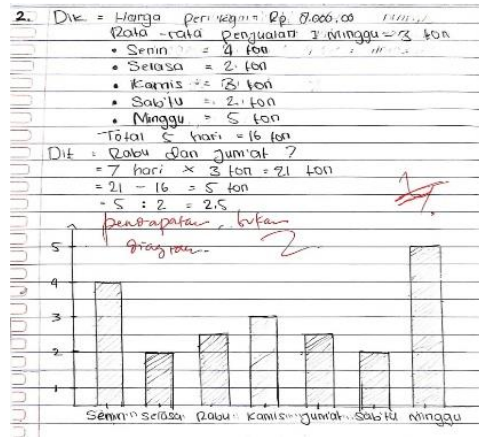 2. Dik = Harga per kg = Rp. 8.000,00
Rata-rata penjualan 1 minggu = 3 ton
• Senin = 4 ton
• Selasa = 2 ton
• Kamis = 3 ton
• Sabtu = 2 ton
• Minggu = 5 ton
Total 5 hari = 16 ton
Dit = Rabu dan Jum'at ?
= 7 hari × 3 ton = 21 ton
= 21 - 16 = 5 ton
= 5 : 2 = 2,5
pendapatan, bukan
diagram. 2
5
4
3
2
1
Senin Selasa Rabu Kamis Jum'at Sabtu Minggu